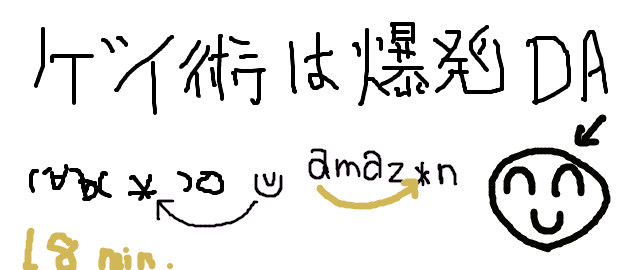 ゲイ術は爆発DA
amaz*n
18 min.